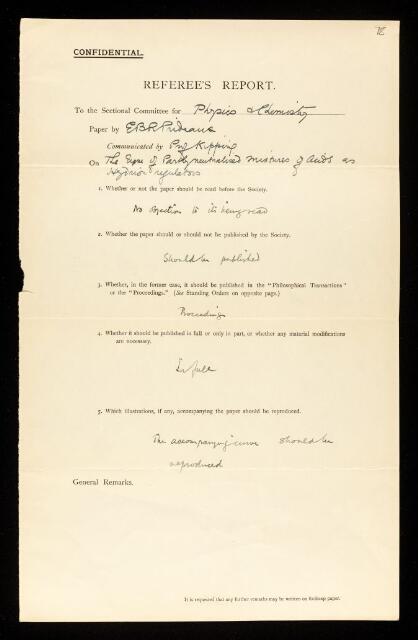 CONFIDENTIAL.
REFEREE'S REPORT.
To the Sectional Committee for Physics & Chemistry
Paper by E B R Prideaux
Communicated by Prof Kipping
On The Use of Partly neutralised mixtures of acids as
Hydrion regulators
1. Whether or not the paper should be read before the Society.
No objection to its being read
2. Whether the paper should or should not be published by the Society.
Should be published
3. Whether, in the former case, it should be published in the "Philosophical Transactions"
or the "Proceedings." (See Standing Orders on opposite page.)
Proceedings
4. Whether it should be published in full or only in part, or whether any material modifications
are necessary.
In full
5. Which illustrations, if any, accompanying the paper should be reproduced.
The accompanying curve should be
reproduced
General Remarks.
It is requested that any further remarks may be written on foolscap paper.